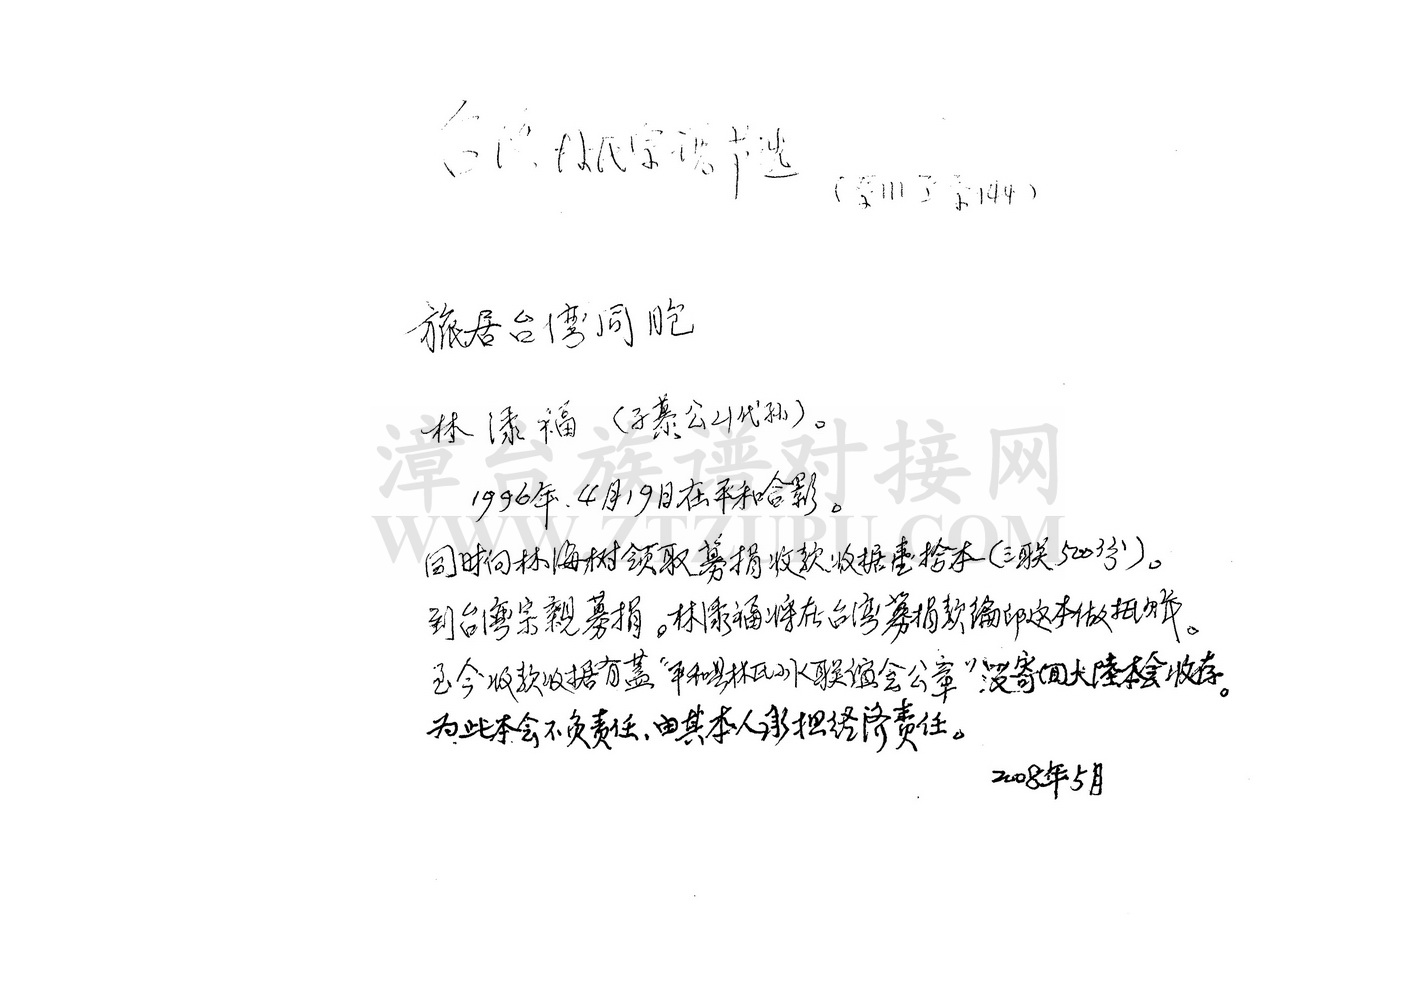 台湾林氏宗谱节选
(第111至第144)
旅居台湾同胞
林添福(子慕公21代孙)。
漳台族谱对接网
1996年.4月19日在平和合影。
WWW.ZTZUPU.COM
同时向林海树领取募捐收款收据壹拾本(三联500份)。
到台湾宗親募捐。林添福将在台湾募捐款编印这本做抵账。
至今收款收据有蓋"平和县林氏 联谊会公章"没寄回大陸本会收存。
为此本会不负责任、由其本人承担经济责任。
2008年5月